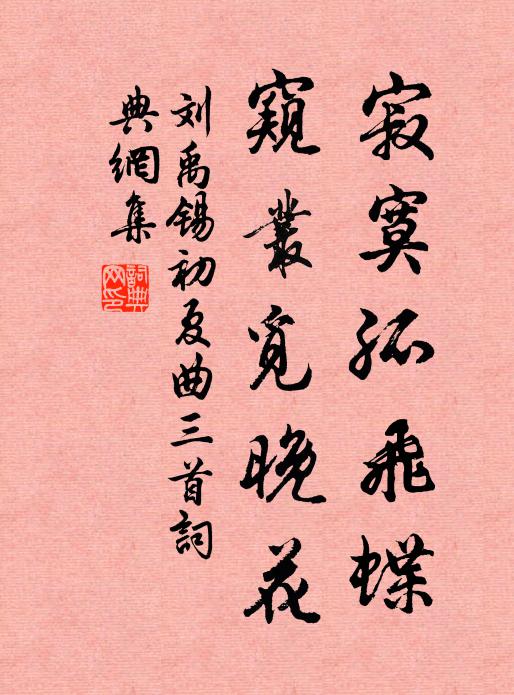 寂寞孤飛蝶
窺叢覓晚花
刘禹锡初夏曲三首詞
典網集
詞典
网印